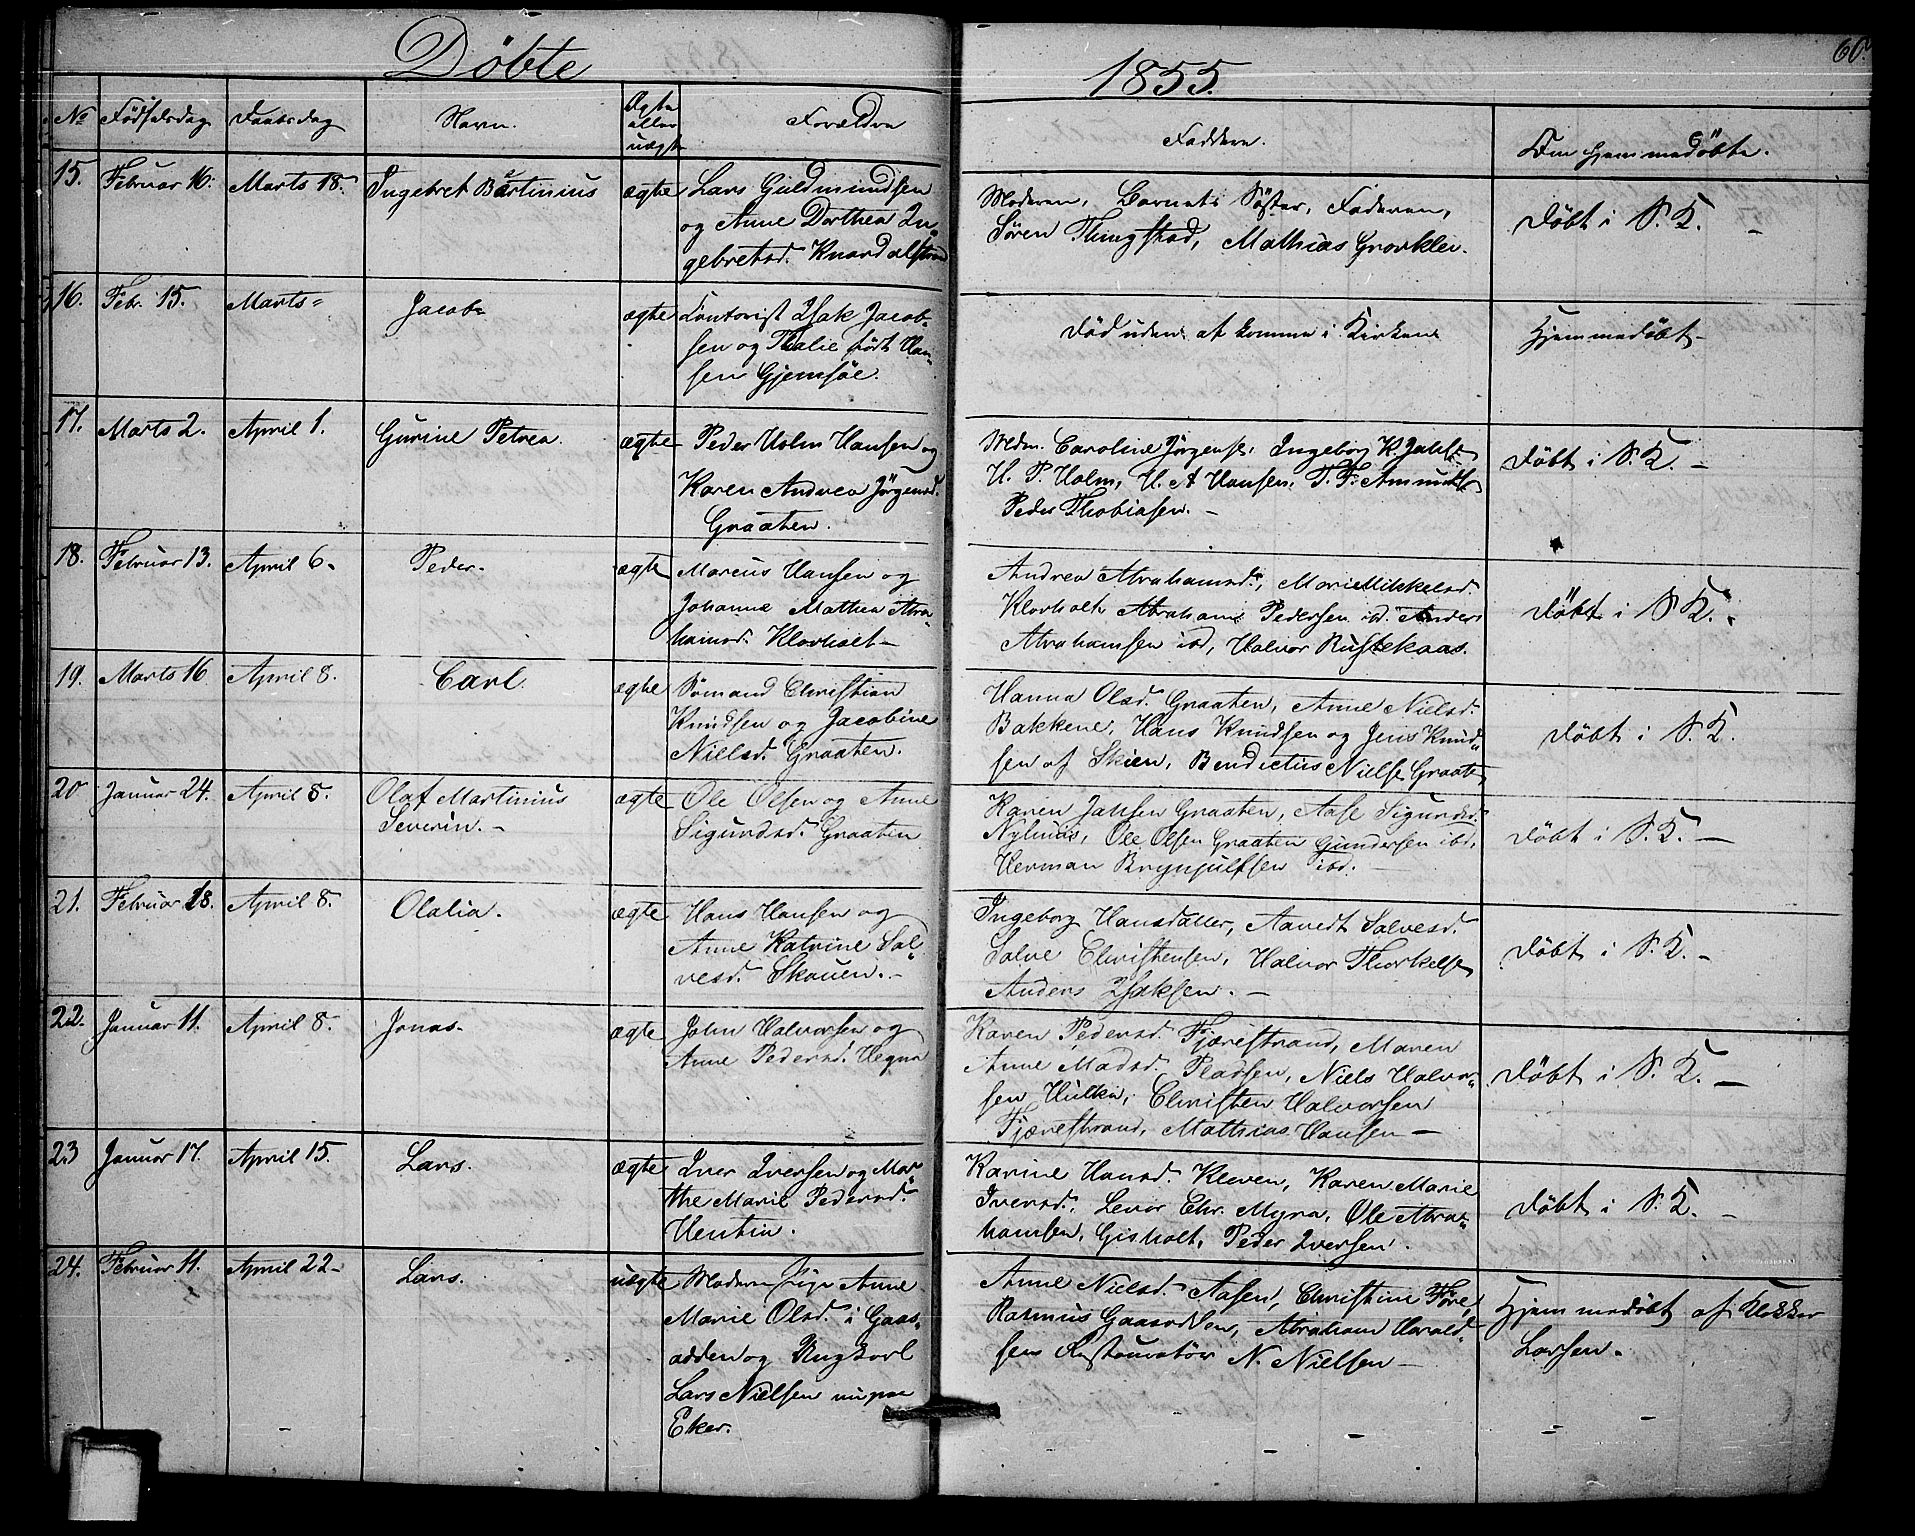 Döbte
1855.
60.
No Födselsdag Daabsdag Navn. Ægte eller uægte Forældre Faddere. Om hjemmedöbte.
15. Februar 16. Marts 18. Ingebret Bertinius ægte Lars Guldmundsen
og Anne Dorthea In-
gebretsd. Knardalstrand
Moderen, Barnets Söster, Faderen,
Sören Thingstad, Mathias Grovklei.
Döbt i S. K. -
16. Febr. 15. Marts - Jacob - ægte Isak Jacob-
sen og Thalie födt Han-
sen Gjemsöe.
Död uden at komme i Kirken
Hjemmedöbt -
17. Marts 2. April 1. Gurine Petrea. ægte Peder Holm Hansen og
Karen Andrea Jörgensd.
Graaten.
Mdm. Caroline Jörgens., Ingeborg K.
H. P. Holm, H. A Hansen, T. F.
Peder Thobiasen. -
Döbt i S. K. -
18. Februar 13. April 6 - Peder - ægte Marcus Hansen og
Johanne Mathea Abra-
hamsd. Klovholt -
Andrea Abrahamsd., Marie Mikkelsd.
Klovholt, Abraham Pedersen ibd. Anders
Abrahamsen ibd, Halvor Rustekaas.
Döbt i S. K. -
19. Marts 16 April 8. Carl. ægte Sömand Christian
Knudsen og Jacobine
Nielsd. Graaten.
Hanna Olsd. Graaten, Anne Nielsd.
Bakkene, Hans Knudsen og Jens Knud-
sen af Skien, Bendictus Niels. Graaten
Döbt i S. K.
20 Januar 24. April 8. Olaf Martinius
Severin. -
ægte Ole Olsen og Anne
Sigundsd. Graaten
Karen Jansen Graaten, Aase Sigundsd.
Nylunds, Ole Olsen Graaten Gundersen ibd,
Herman Brynjulfsen ibd. -
Döbt i S. K. -
21. Februar 18. April 8. Olalia. ægte Hans Hansen og
Anne Katrine Sal-
vesd. Skauen. -
Ingeborg Hansdatter, Aavedt Salvesd.
Salve Christensen, Halvor Thorkelse
Anders Isaksen. -
Döbt i S. K. -
22. Januar 11. April 8. Jonas - ægte John Halvorsen og
Anne Pedersd. Hegna
Karen Pedersd. Fjærestrand, Maren
Anne Madsd. Pladsen, Niels Halvor-
sen Hulka, Christen Halvorsen
Fjærestrand, Mathias Hansen -
Döbt i S. K. -
23 Januar 17. April 15. Lars. ægte Iver Iversen og Mar-
the Marie Pedersd.
Hentin.
Karine Hansd. Kleven, Karen Marie
Iversd., Levor Chr. Myra, Ole Abra-
hamsen, Gisholt, Peder Iversen.
Döbt i S. K. -
24. Februar 11. April 22 - Lars. uægte Moderen Pige Anne
Marie Olsd. i Gaas-
odden og Ungkarl
Lars Nielsen nu paa
Eker.
Anne Nielsd. Aasen, Christine
Rasmus Gaasodden, Abraham Harald-
sen Restauratör N. Nielsen -
Hjemmedöbt af Klokker
Larsen.